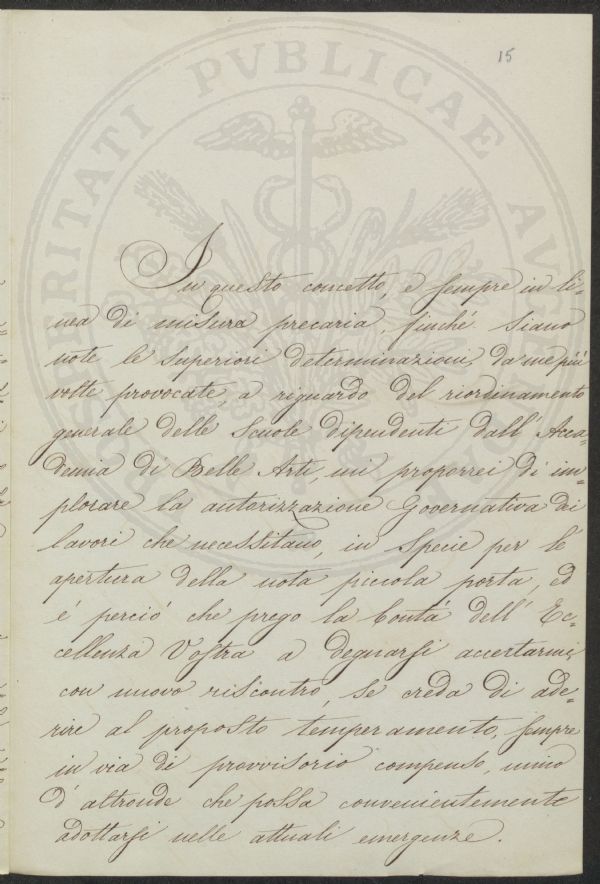 15
PROSPERITATI PVBLICAE AVGENDAE
In questo concetto, e sempre in li=
nea di misura precaria, finché siano
note le superiori determinazioni, da me più
volte provocate, a riguardo del riordinamento
generale delle Scuole dipendenti dall' Acca=
demia di Belle Arti, mi proporrei di im=
plorare la autorizzazione Governativa dei
lavori che necessitano, in specie per l'
apertura della nota piccola porta, ed
è perciò che prego la bontà dell' Ec=
cellenza Vostra a degnarsi accertarmi,
con nuovo riscontro, se creda di ade=
rire al proposto temperamento, sempre
in via di provvisorio compenso, unico
d' altronde che possa convenientemente
adottarsi nelle attuali emergenze.